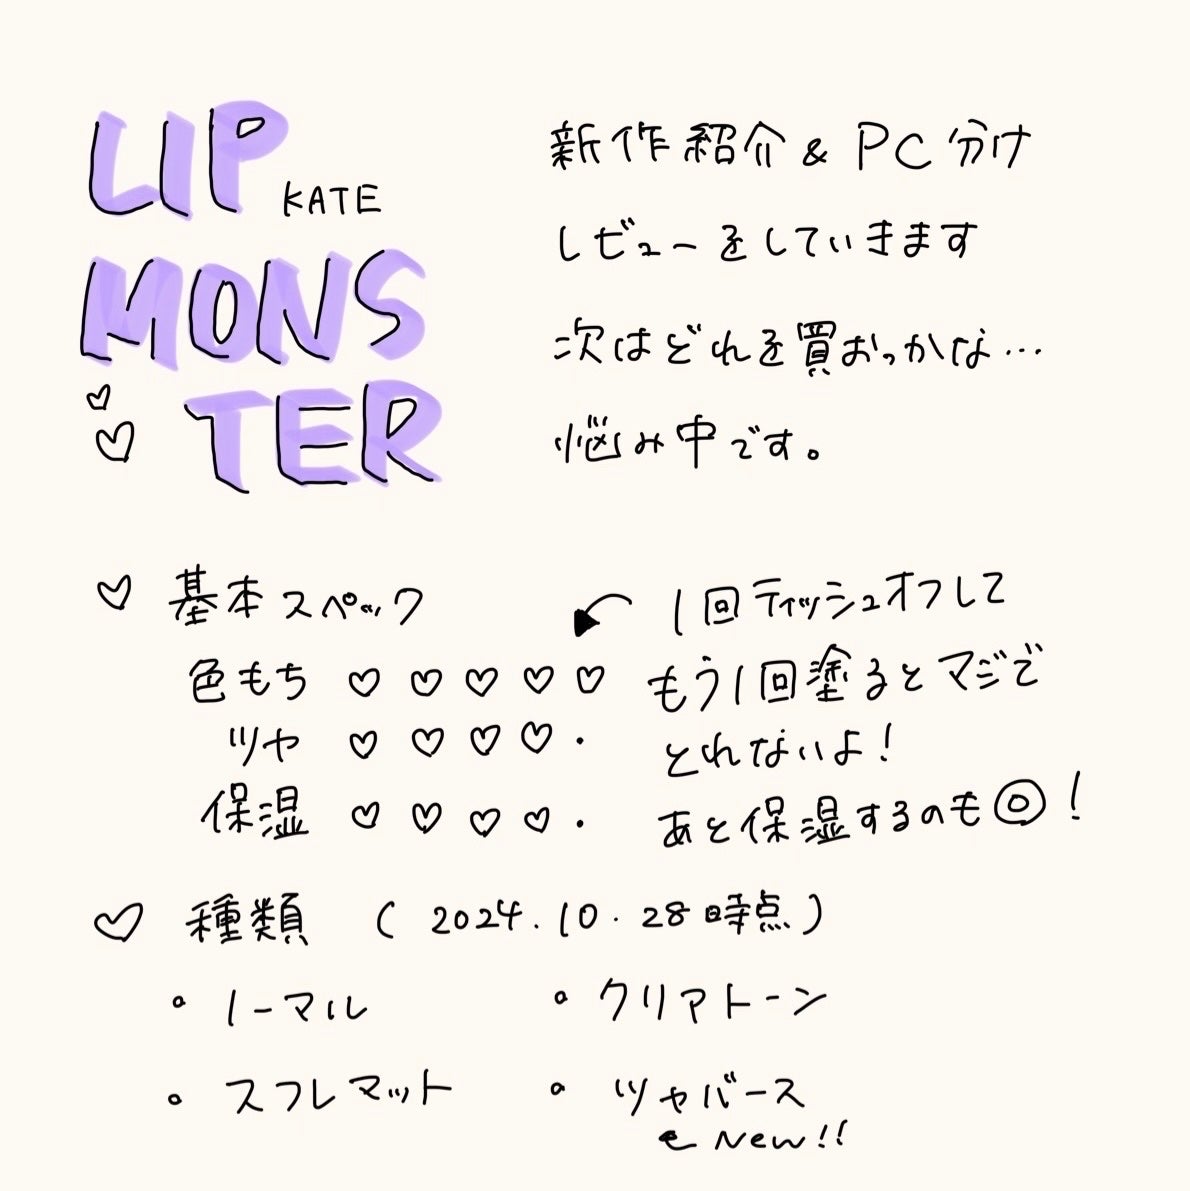 LIP
KATE
MONS
TER
新作紹介 & PC分け
レビューをしていきます
次はどれを買おっかな…
悩み中です。
♡ 基本スペック
色もち ♡ ♡ ♡ ♡ ♡
ツヤ ♡ ♡ ♡ ♡ ・
保湿 ♡ ♡ ♡ ♡ ・
1回ティッシュオフして
もう1回塗るとマジで
とれないよ!
あと保湿するのも◎!
♡ 種類 (2024.10.28時点)
• ノーマル
• クリアトーン
• スフレマット
• ツヤバース
New!!